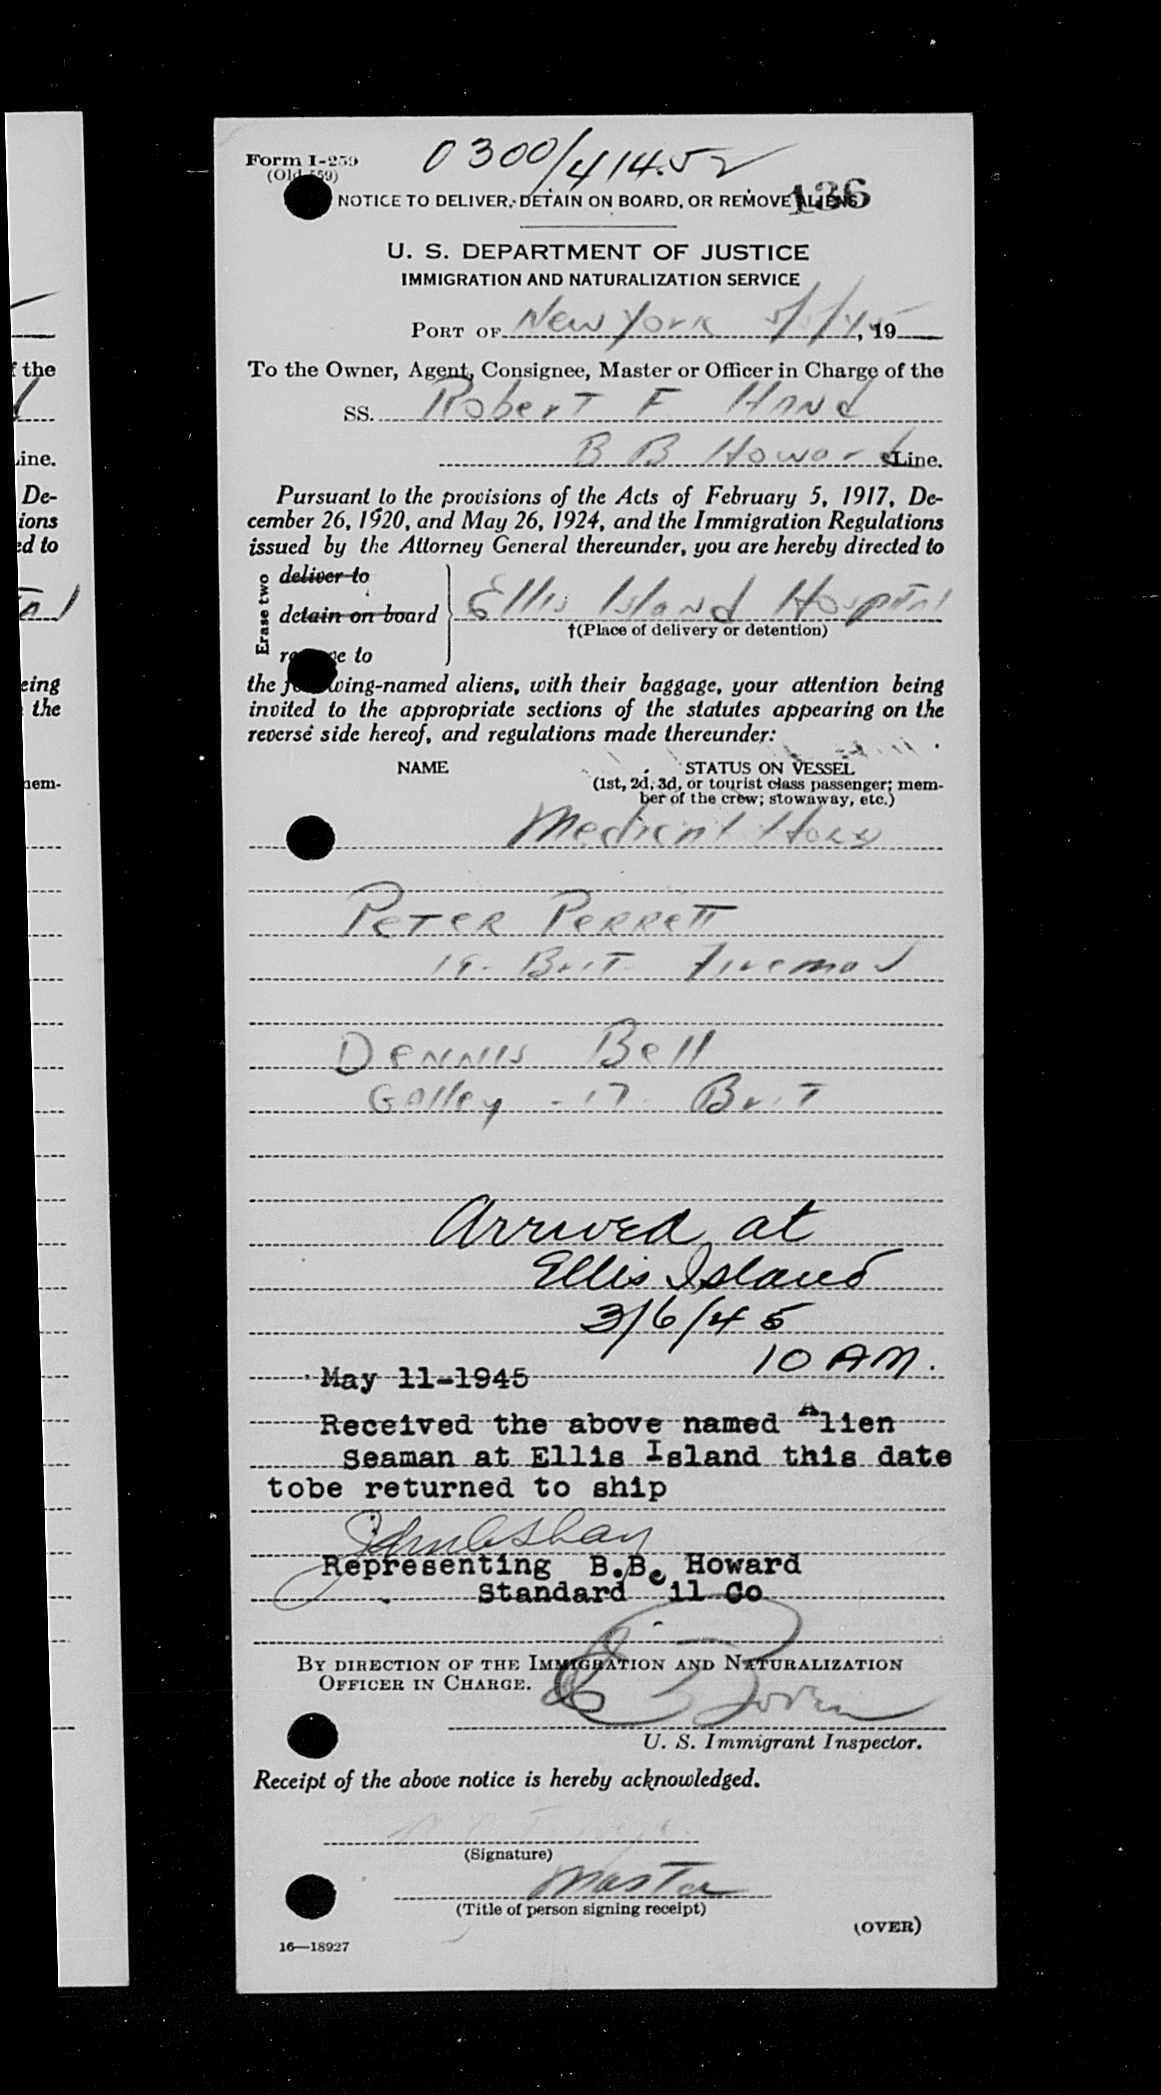 the
ine.
De-
ions
ed to
eing
the
nem-
Form I-259
(Old 559)
0300/41452
136
NOTICE TO DELIVER, DETAIN ON BOARD, OR REMOVE ALIENS
U. S. DEPARTMENT OF JUSTICE
IMMIGRATION AND NATURALIZATION SERVICE
PORT OF New York 5/5/45, 19
To the Owner, Agent, Consignee, Master or Officer in Charge of the
SS. Robert F Hand
B B Howard Line.
Pursuant to the provisions of the Acts of February 5, 1917, De-
cember 26, 1920, and May 26, 1924, and the Immigration Regulations
issued by the Attorney General thereunder, you are hereby directed to
Erase two
deliver to
detain on board
remove to
Ellis Island Hospital
†(Place of delivery or detention)
the following-named aliens, with their baggage, your attention being
invited to the appropriate sections of the statutes appearing on the
reverse side hereof, and regulations made thereunder:
NAME STATUS ON VESSEL
(1st, 2d, 3d, or tourist class passenger; mem-
ber of the crew; stowaway, etc.)
Medical
Peter Perrett
19- Brit- Fireman
Dennis Bell
Galley - 17- Brit
Arrived at
Ellis Island
3/6/45
10 AM.
May 11-1945
Received the above named Alien
Seaman at Ellis Island this date
tobe returned to ship
Representing B.B. Howard
Standard il Co
BY DIRECTION OF THE IMMIGRATION AND NATURALIZATION
OFFICER IN CHARGE.
U. S. Immigrant Inspector.
Receipt of the above notice is hereby acknowledged.
(Signature)
Master
(Title of person signing receipt)
(OVER)
16—18927